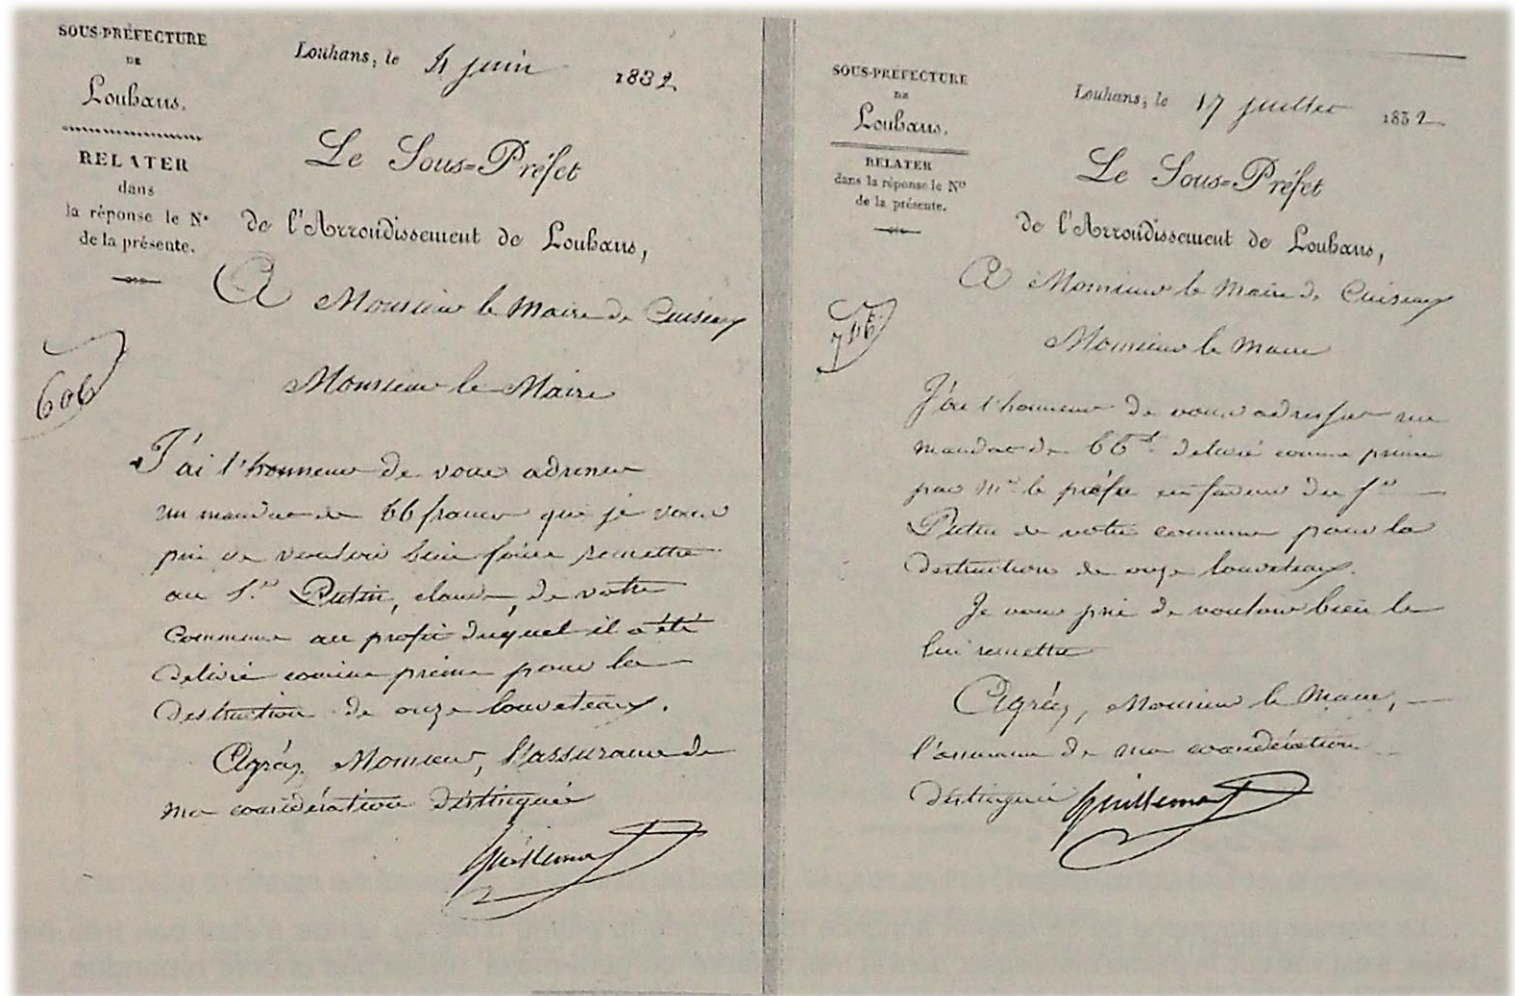 SOUS-PRÉFECTURE
DE
Louhans.
RELATER
dans
la réponse le N°
de la présente.
606
Louhans, le 4 juin 1832
Le Sous-Préfet
de l'Arrondissement de Louhans,
A Monsieur le Maire de Cuiseaux
Monsieur le Maire
J'ai l'honneur de vous adresser
un mandat de 66 francs que je vous
prie de vouloir bien faire remettre
au S.r Putin, claude, de votre
commune au profit duquel il a été
délivré comme prime pour la
destruction de onze louveteaux.
Agréez, Monsieur, l'assurance de
ma considération distinguée
Guillemaut
SOUS-PRÉFECTURE
DE
Louhans.
RELATER
dans la réponse le N°
de la présente.
Louhans, le 17 juillet 1832
Le Sous-Préfet
de l'Arrondissement de Louhans,
A Monsieur le Maire de Cuiseaux
Monsieur le Maire
J'ai l'honneur de vous adresser un
mandat de 66 f. délivré comme prime
par Mr le préfet en faveur du Sr
Putin de votre commune pour la
destruction de onze louveteaux.
Je vous prie de vouloir bien le
lui remettre
Agréez, Monsieur le Maire,
l'assurance de ma considération
distinguée Guillemaut